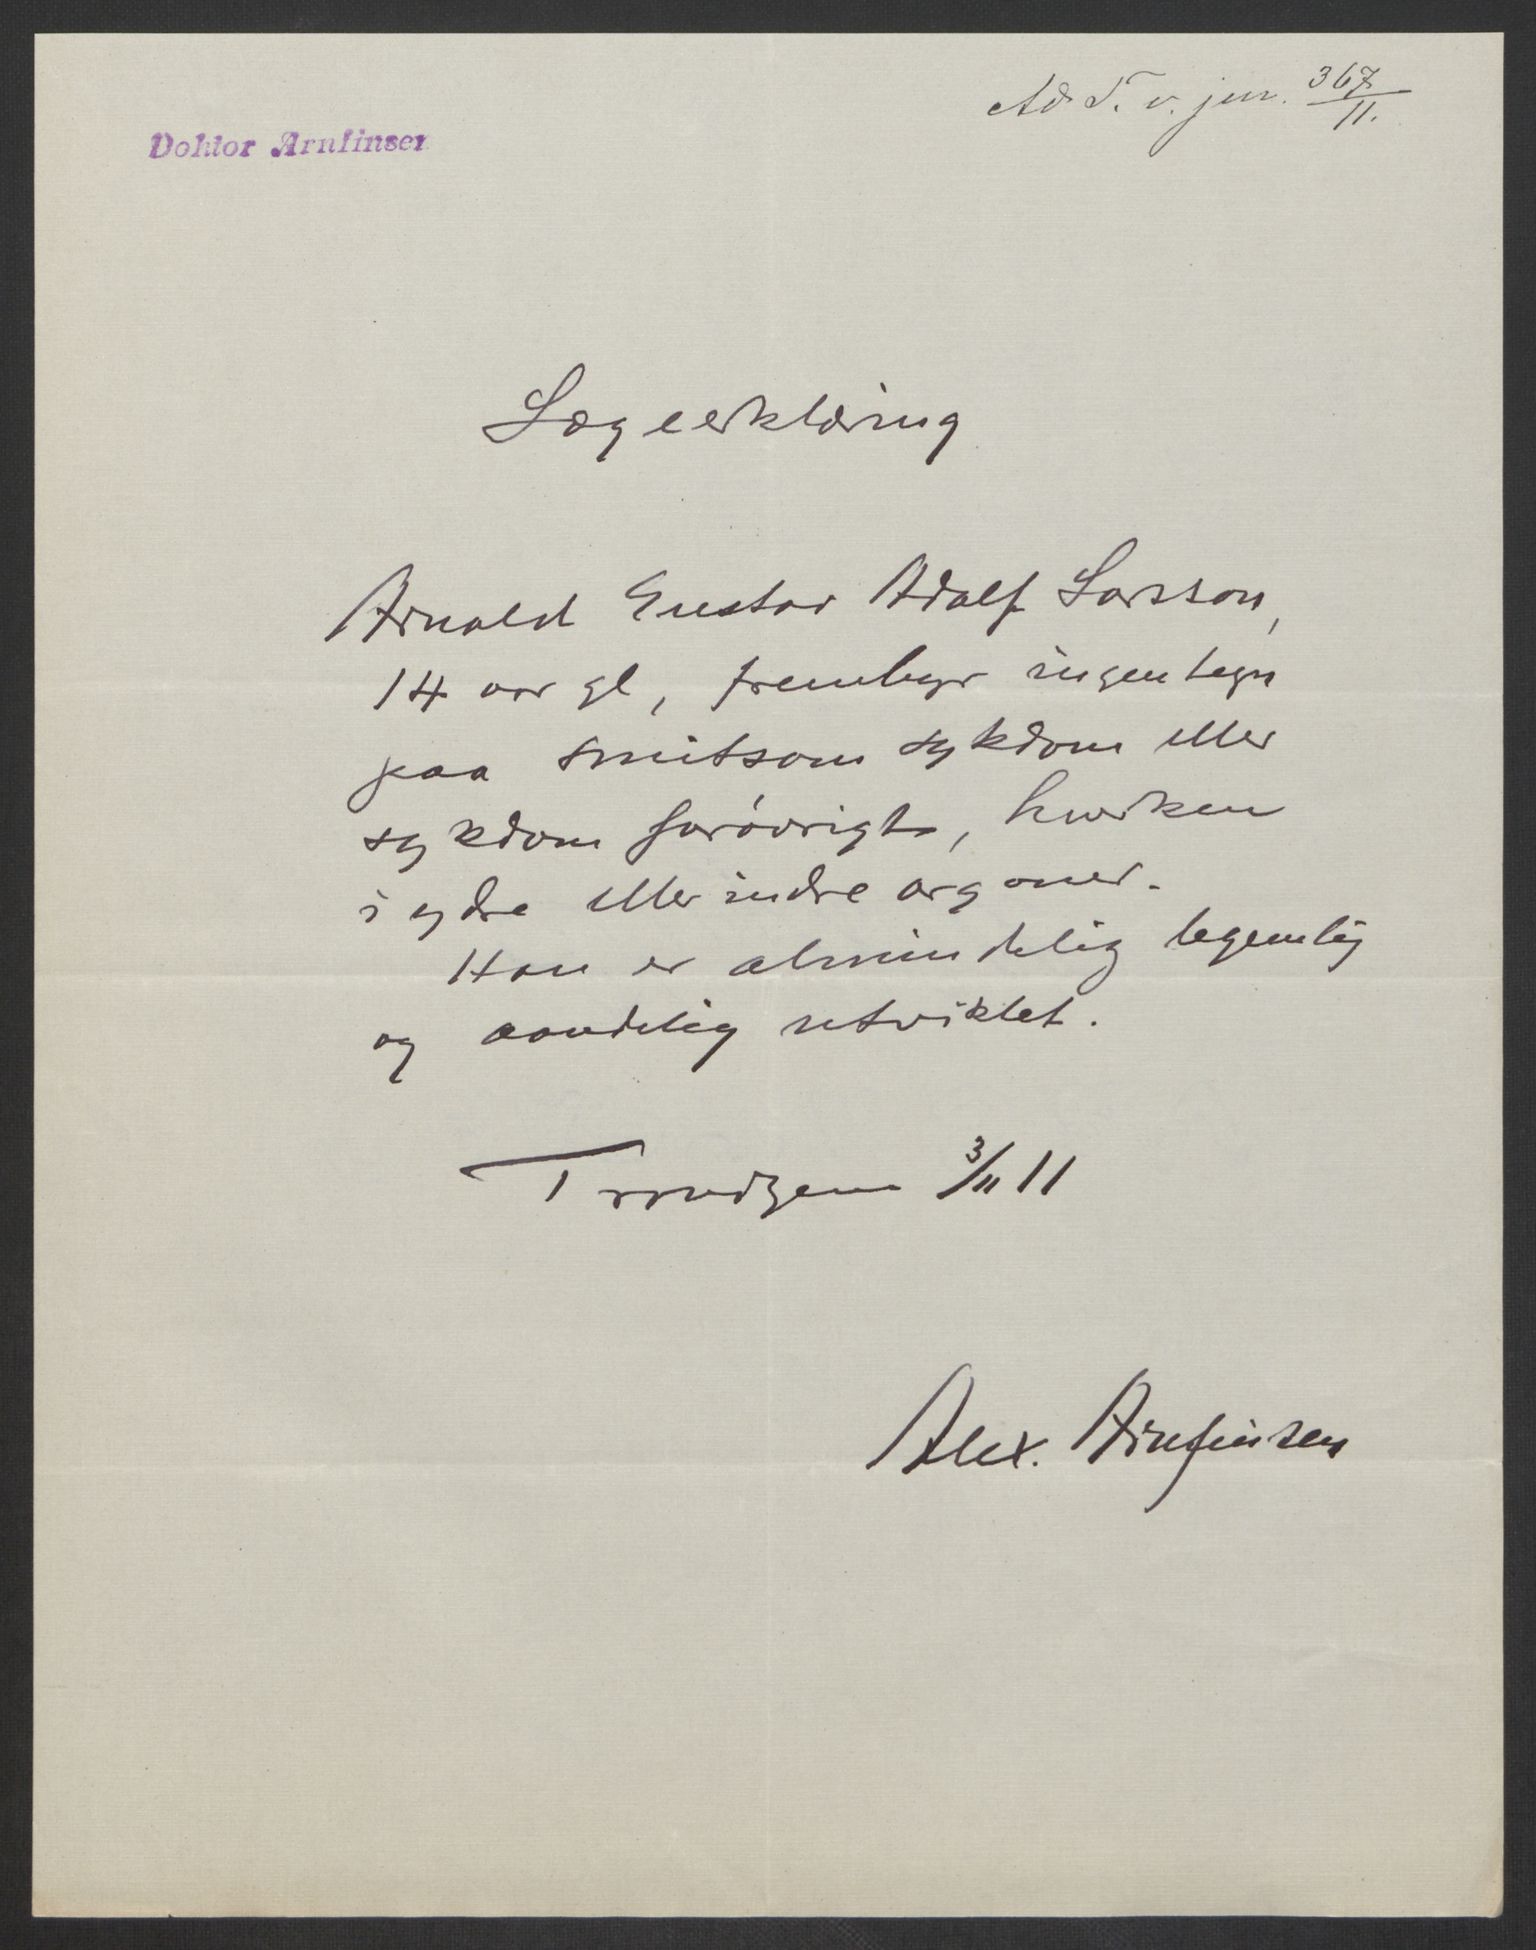 Ad T. v. jnr. 367/11.
Doktor Arnfinsen
Lægeerklæring
Arnold Gustav Adolf Larsson,
14 aar gl, frembyr ingen tegn
paa smitsom sykdom eller
sykdom forøvrigt, hverken
i ydre eller indre organer.
Han er almindelig legemlig
og aandelig utviklet.
Trondhjem 3/11 11
Alex. Arnfinsen